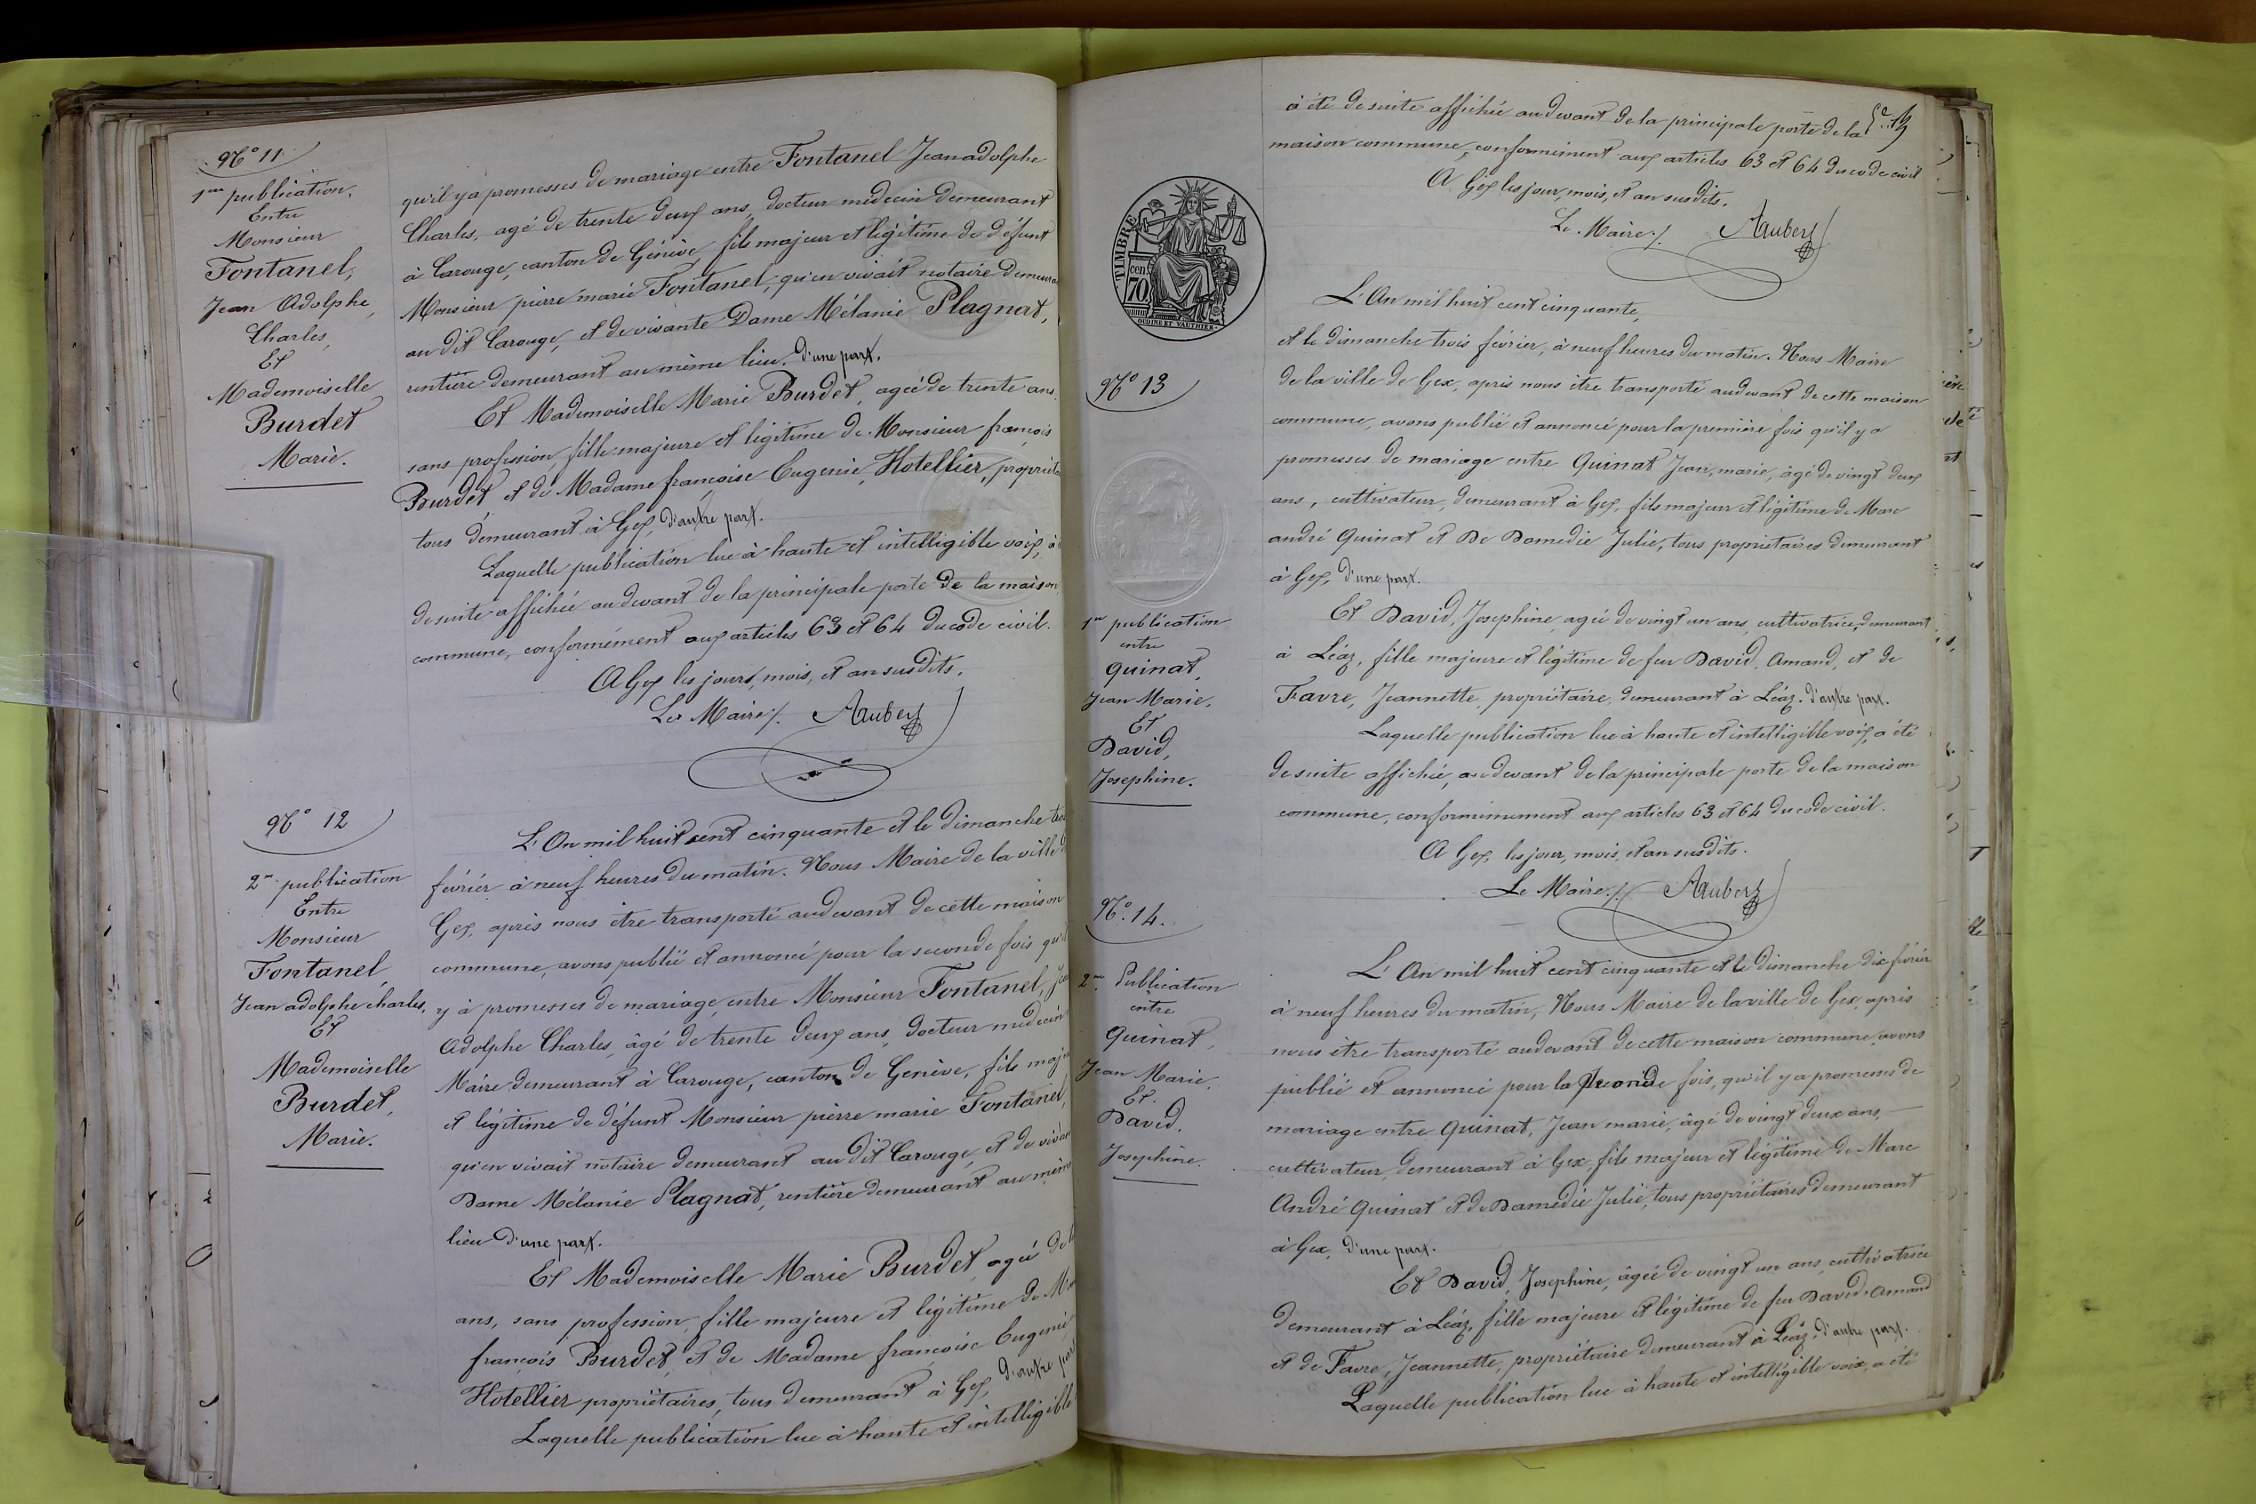 N° 11
1re publication.
Entre
Monsieur
Fontanel,
Jean Adolphe,
Charles,
Et
Mademoiselle
Burdet
Marie.
qu'il y a promesses de mariage entre Fontanel Jean adolphe
Charles, agé de trente deux ans, docteur médecin demeurant
à Carouge, canton de Génève fils majeur et légitime de défunt
Monsieur pierre marie Fontanel, qu'en vivait notaire demeuran
au dit Carouge, et de vivante Dame Mélanie Plagnat,
rentière demeurant au même lieu. d'une part.
Et Mademoiselle Marie Burdet, agée de trente ans.
sans profession, fille majeure et légitime de Monsieur françois
Burdet et de Madame françoise Eugenie, Hotellier, propriéta
tous demeurant à Gex, d'autre part.
Laquelle publication lue à haute et intelligible voix, a
de suite affichée au devant de la principale porte de la maison
commune, conformément aux articles 63 et 64 du code civil.
A Gex les jours, mois, et an susdits.
Le Maire /. Aubert
N° 12
2me publication
Entre
Monsieur
Fontanel
Jean adolphe charles,
Et
Mademoiselle
Burdet,
Marie.
L'An mil huit cent cinquante et le dimanche tro
février à neuf heures du matin. Nous Maire de la ville d
Gex, après nous être transporté au devant de cette maison
commune, avons publié et annoncé pour la seconde fois qu'il
y à promesses de mariage, entre Monsieur Fontanel, Jea
Adolphe Charles, âgé de trente deux ans, docteur médecin
Maire demeurant à Carouge, canton de Genève, fils maje
et légitime de défunt Monsieur pierre marie Fontanel,
qu'en vivait notaire demeurant au dit Carouge, et de vivan
Dame Mélanie Plagnat, rentière demeurant au même
lieu d'une part.
Et Mademoiselle Marie Burdet, agée de t
ans, sans profession, fille majeure et légitime de M
françois Burdet, et de Madame françoise Eugenie
Hotellier propriétaires, tous demeurant à Gex, d'autre part
Laquelle publication lue à haute et intelligible
à été de suite affichée au devant de la principale porte de la
maison commune, conformément aux articles 63 et 64 du code civil
A Gex les jour, mois, et an susdits.
Le Maire /. Aubert
TIMBRE
cen
70
OUDINE ET VAUTHIER
N° 13
1re publication
entre
Quinat,
Jean Marie,
Et
David,
Josephine.
L'An mil huit cent cinquante,
et le dimanche trois février, à neuf heures du matin. Nous Maire
de la ville de Gex, après nous être transporté au devant de cette maison
commune, avons publié et annoncé pour la première fois qu'il y a
promesses de mariage entre Quinat Jean, marie, âgé de vingt deux
ans, cultivateur, demeurant à Gex, fils majeur et légitime de Marc
andré Quinat et De Damedie Julie, tous propriétaires demeurant
à Gex, d'une part.
Et David, Josephine agée de vingt un ans, cultivatrice, demeurant
à Léaz, fille majeure et légitime de feu David, Amand, et de
Favre, Jeannette, propriétaire demeurant à Léaz. d'autre part.
Laquelle publication lue à haute et intelligible voix, a été
de suite affichée, au devant de la principale porte de la maison
commune, conformimement aux articles 63 et 64 du code civil.
A Gex, les jour, mois, et an susdits.
Le Maire /. Aubert
N°. 14.
2me. Publication
entre
Quinat,
Jean Marie,
Et
David,
Josephine.
L'An mil huit cent cinquante et le dimanche dix février
à neuf heures du matin, Nous Maire de la ville de Gex, après
nous être transporté au devant de cette maison commune, avons
publié et annoncé pour la seconde fois, qu'il y a promesses de
mariage entre Quinat, Jean marie, âgé de vingt deux ans,
cultivateur, demeurant à Gex, fils majeur et légitime de Marc
André Quinat et de Damedie Julie, tous propriétaires demeurant
à Gex, d'une part.
Et David, Josephine, âgée de vingt un ans, cultivatrice
demeurant à Léaz, fille majeure et légitime de feu David, Amand
et de Favre, Jeannette, propriétaire demeurant à Léaz, d'autre part.
Laquelle publication lue à haute et intelligible voix, a été